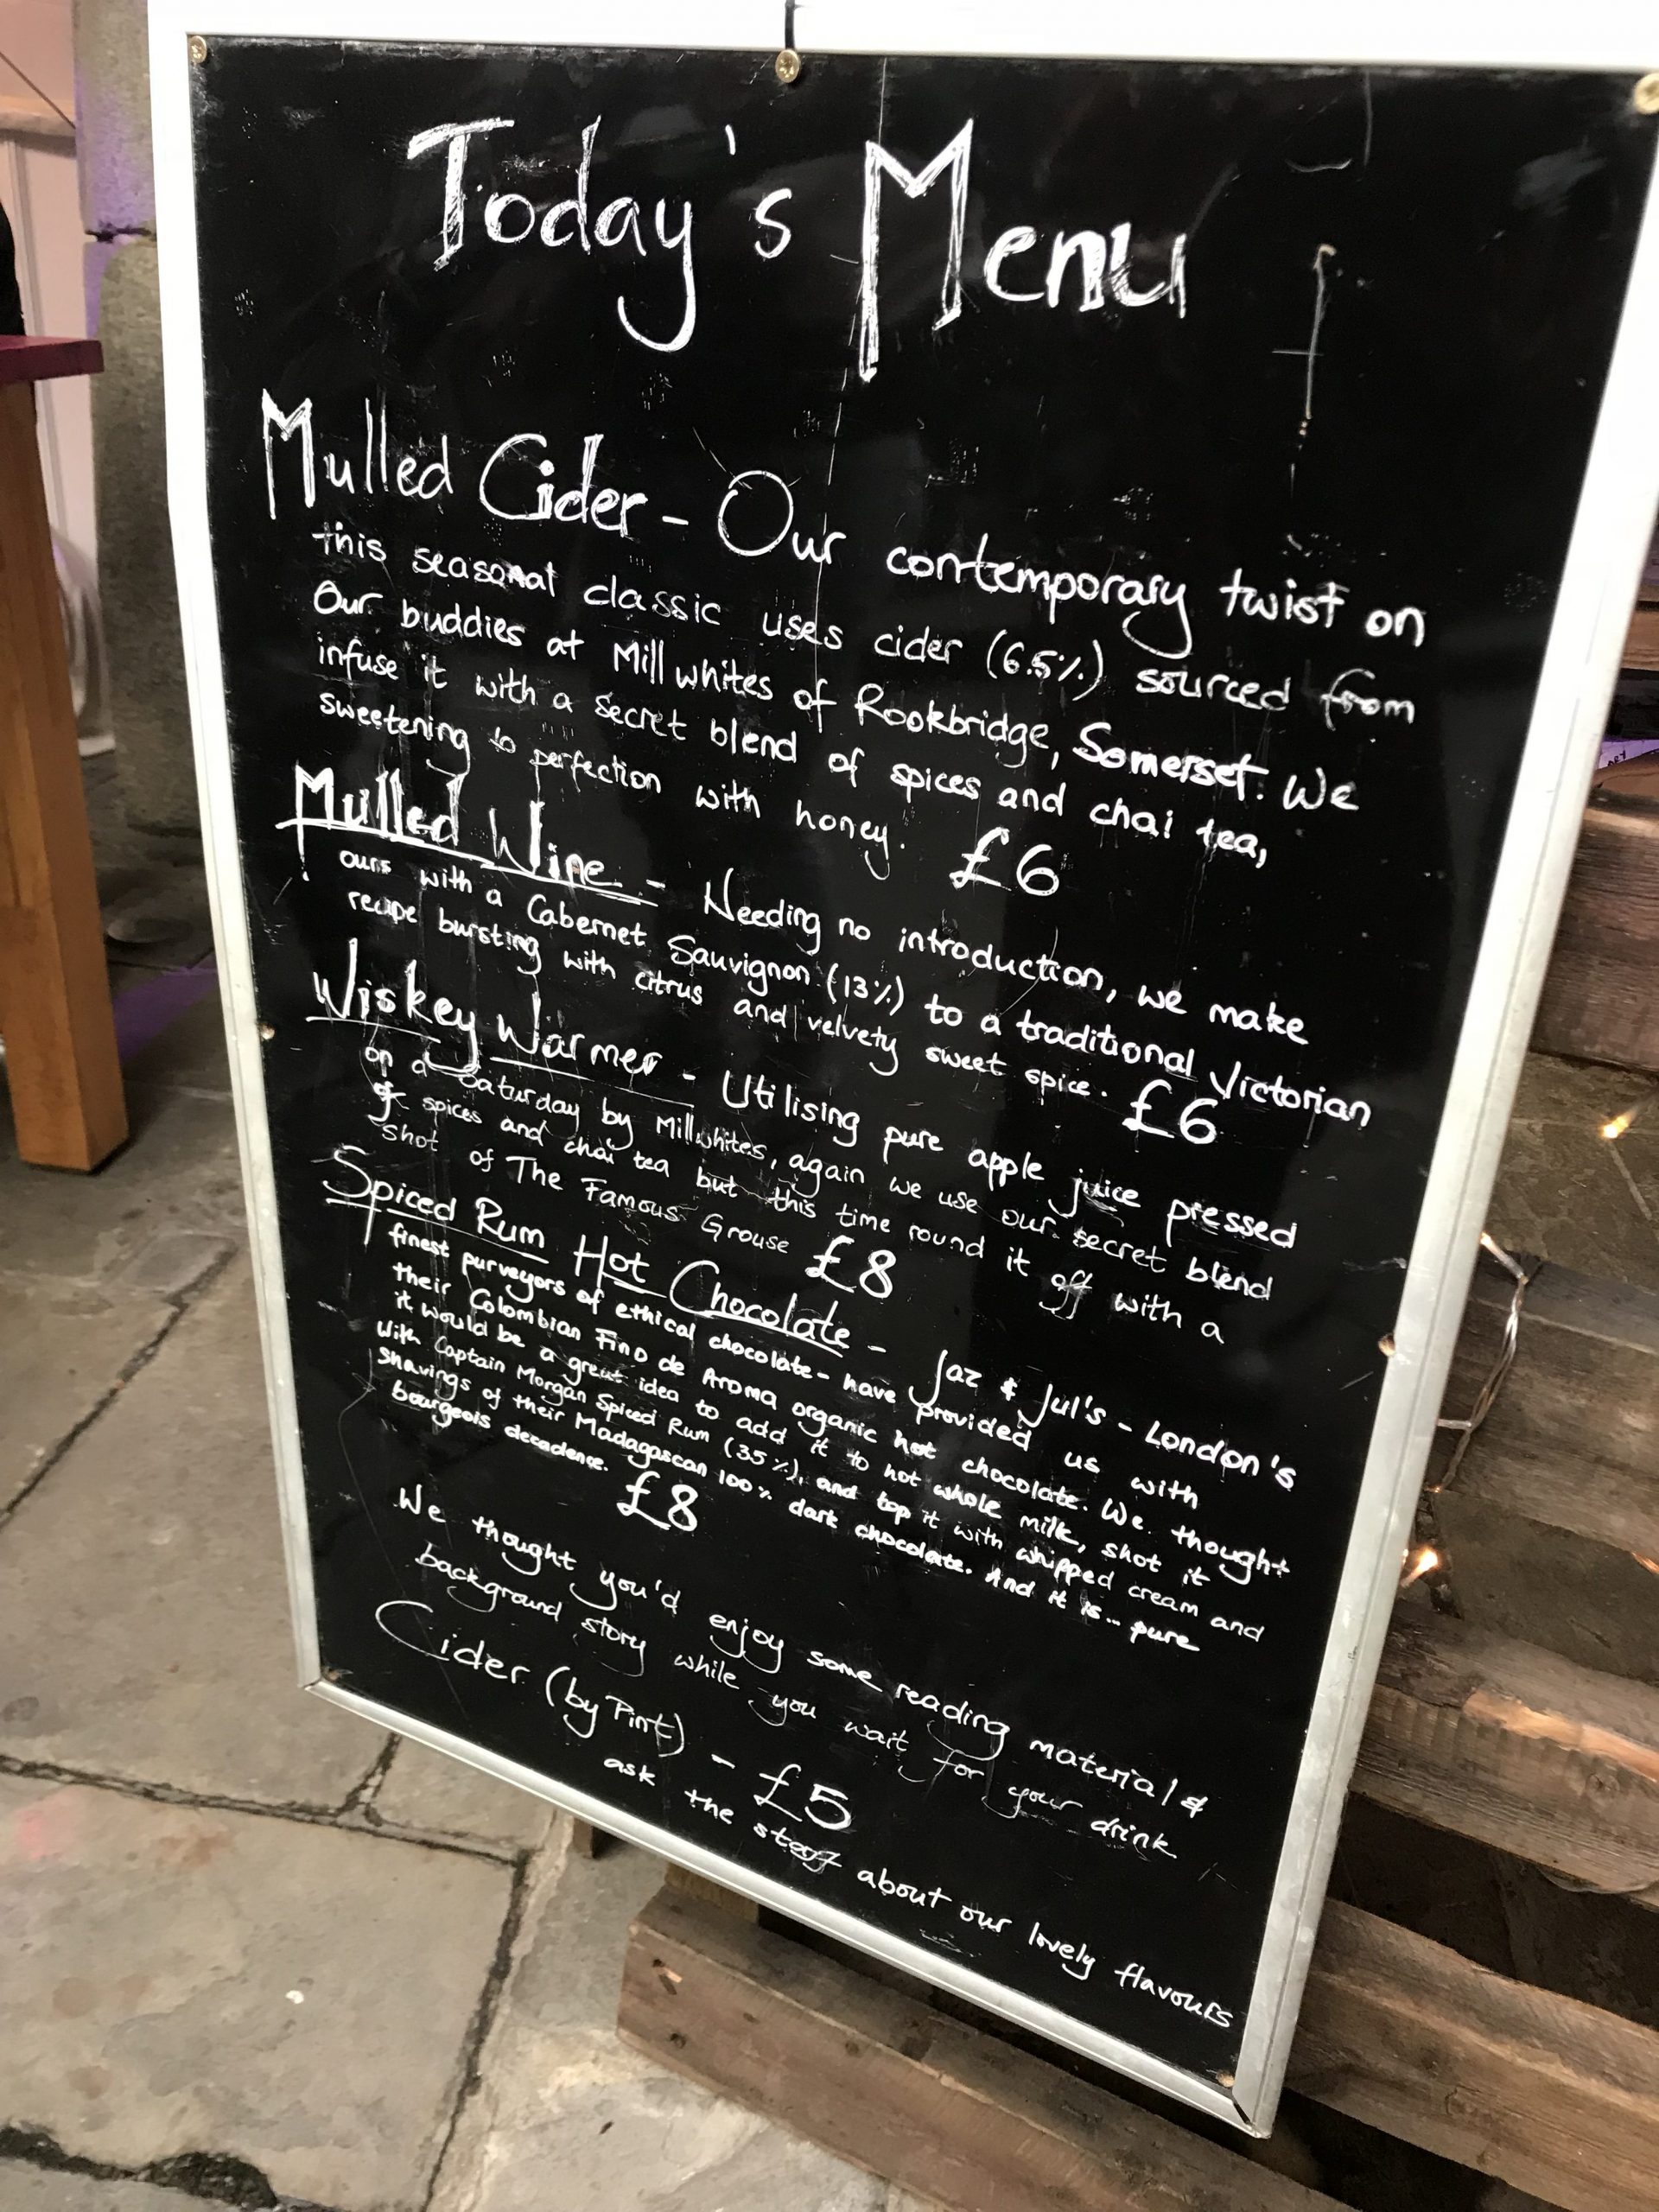 Today's Menu
Mulled Cider - Our contemporary twist on
this seasonal classic uses cider (6.5%) sourced from
Our buddies at Millwhites of Rookbridge, Somerset. We
infuse it with a secret blend of spices and chai tea,
sweetening to perfection with honey. £6
Mulled Wine - Needing no introduction, we make
ours with a Cabernet Sauvignon (13%) to a traditional Victorian
recipe bursting with citrus and velvety sweet spice. £6
Wiskey Warmer - Utilising pure apple juice pressed
on a Saturday by Millwhites, again we use our secret blend
of spices and chai tea but this time round it off with a
shot of The Famous Grouse £8
Spiced Rum Hot Chocolate - Jaz & Jul's - London's
finest purveyors of ethical chocolate - have provided us with
their Colombian Fino de Aroma organic hot chocolate. We thought
it would be a great idea to add it to hot whole milk, shot it
with Captain Morgan Spiced Rum (35%), and top it with whipped cream and
shavings of their Madagascan 100% dark chocolate. And it is... pure
bourgeois decadence. £8
We thought you'd enjoy some reading material &
background story while you wait for your drink
Cider (by Pint) - £5
ask the staff about our lovely flavours